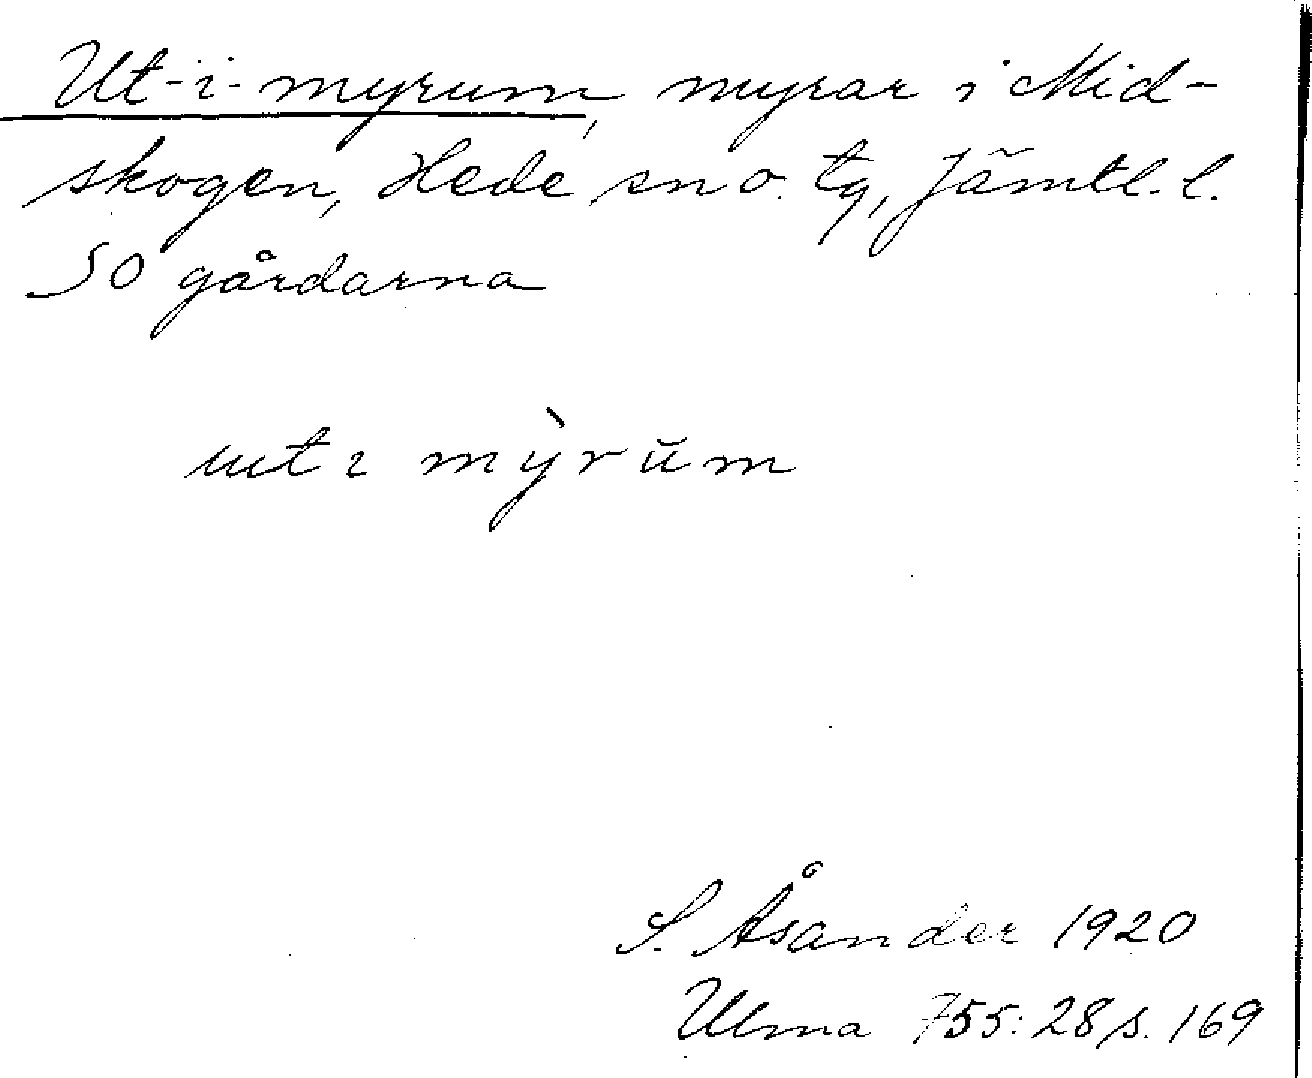 Ut-i-myrum, myrar i Mid-
skogen, Hede sn o. tg, Jämtl. l.
SO gårdarna
ut ı mỳrŭm
S. Åsander 1920
Ulma 755:28 s. 169